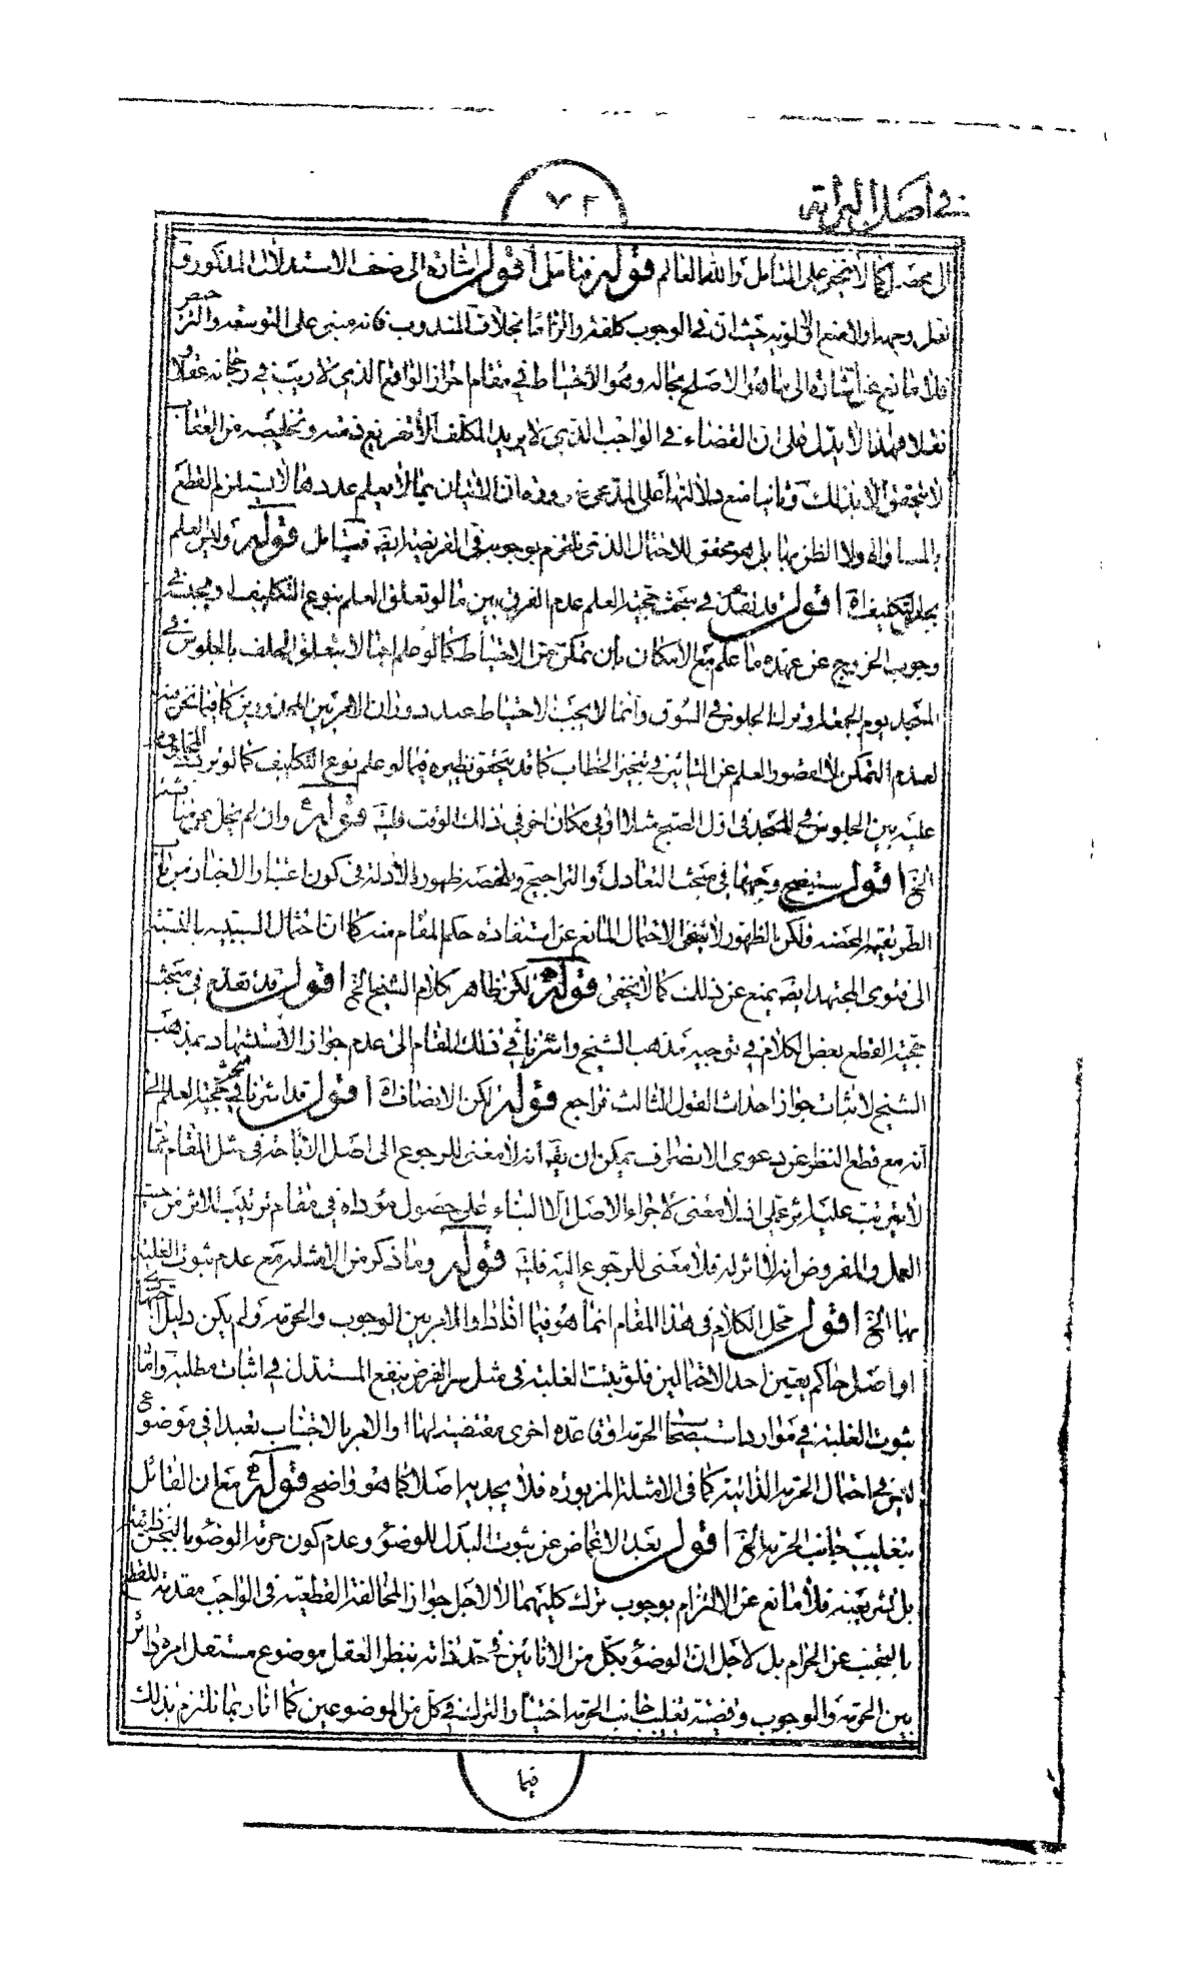 في اصل البرائة
٧٢
ال محصله كما لا يخفى على المتأمل والله العالم قوله فتأمل اقول اشارة الى ضعف الاستدلال المذكور
لعله وجهه اولا منع الاولوية حيث ان في الوجوب كلفة والزاما بخلاف المندوب فانه مبني على التوسعة والتر
فلا مانع عن اشارة الى ما هو الاصلح بحاله وهو الاحتياط في مقام احراز الواقع الذي لا ريب في رجحانه عقلا و
نقلا فهذا لا يدل على ان القضاء في الواجب الذي لا يريد المكلف الا تفريغ ذمته وتخليصه من العقاب
لا يتحقق الا بذلك وثانيا منع دلالتها على المدعى ضرورة ان الاتيان بما لا يعلم عددها لا يستلزم القطع
بالمساواة ولا الظن بها بل هو محقق للاحتمال الذي نلتزم بوجوبه في الفريضة ايضه فتأمل قوله وليس العلم
بجنس التكليف اه اقول قد تقدم في مبحث حجية العلم عدم الفرق بين ما لو تعلق العلم بنوع التكليف او بجنسه في
وجوب الخروج عن عهدة ما علم مع الامكان بان تمكن من الاحتياط كما لو علم اجمالا بتعلق الحلف بالجلوس في
المسجد يوم الجمعة او ترك الجلوس في السوق وانما لا يجب الاحتياط عند دوران الامر بين المحذورين كما فيما نحن فيه
لعدم التمكن لا لقصور العلم عن التأثير في تنجيز الخطاب كما قد يتحقق نظيره فيما لو علم نوع التكليف كما لو تردد المحلوف
عليه بين الجلوس في المسجد في اول الصبح مثلا او في مكان اخر في ذلك الوقت فليتـ قوله وان لم يخل عن مناقشة
الخ اقول ستيضح وجهها في مبحث التعادل والتراجيح وملخصه ظهور الادلة في كون اعتبار الاخبار من باب
الطريقية المحضة ولكن الظهور لا ينفي الاحتمال المانع عن استفادة حكم المقام منه كما ان احتمال السببية بالنسبة
الى فتوى المجتهد ايضه يمنع عن ذلك كما لا يخفى قوله لكن ظاهر كلام الشيخ الخ اقول قد تقدم في مبحث
حجية القطع بعض الكلام في توجيه مذهب الشيخ واشرنا في ذلك المقام الى عدم جواز الاستشهاد بمذهب
الشيخ لاثبات جواز احداث القول الثالث فراجع قوله لكن الانصاف اه اقول قد اشرنا في مبحث حجية العلم الى
انه مع قطع النظر عن دعوى الانصراف يمكن ان يقه انه لا معنى للرجوع الى اصل الاباحة في مثل المقام مما
لا يترتب عليه اثر عملي اذ لا معنى لاجراء الاصل الا البناء على حصول مؤداه في مقام ترتيب الاثر من حيث
العمل والمفروض انه لا اثر له فلا معنى للرجوع اليه فليتـ قوله وما ذكر من الامثلة مع عدم ثبوت الغلبة
بها الخ اقول محل الكلام في هذا المقام انما هو فيما اذا دار الامر بين الوجوب والحرمة ولم يكن دليل اجتهادي
او اصل حاكم بتعيين احد الاحتمالين فلو ثبتت الغلبة في مثل هذا الفرض ينفع المستدل في اثبات مطلبه واما
ثبوت الغلبة في موارد استصحاب الحرمة او قاعدة اخرى مقتضية لها او الامر بالاجتناب تعبدا في موضوع
ليس فيه احتمال الحرمة الذاتية كما في الامثلة المزبورة فلا يجديه اصلا كما هو واضح قوله مع ان القائل
بتغليب جانب الحرمة الخ اقول بعد الاغماض عن ثبوت البدل للوضوء وعدم كون حرمة الوضوء بالنجس ذاتية
بل تشريعية فلا مانع عن الالتزام بوجوب ترك كليهما لا لاجل جواز المخالفة القطعية في الواجب مقدمة للقطع
بالتجنب عن الحرام بل لاجل ان الوضوء بكل من الانائين في حد ذاته بنظر العقل موضوع مستقل امره دائر
بين الحرمة والوجوب وقضية تغليب جانب الحرمة اختيار الترك في كل من الموضوعين كما انا ربما نلتزم بذلك
فيما